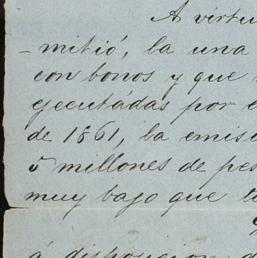 A virtu
-mitió, la una
con bonos y que
ejecutádas por
de 1861, la emis
5 millones de pes
muy bajo que t
á disposicion d